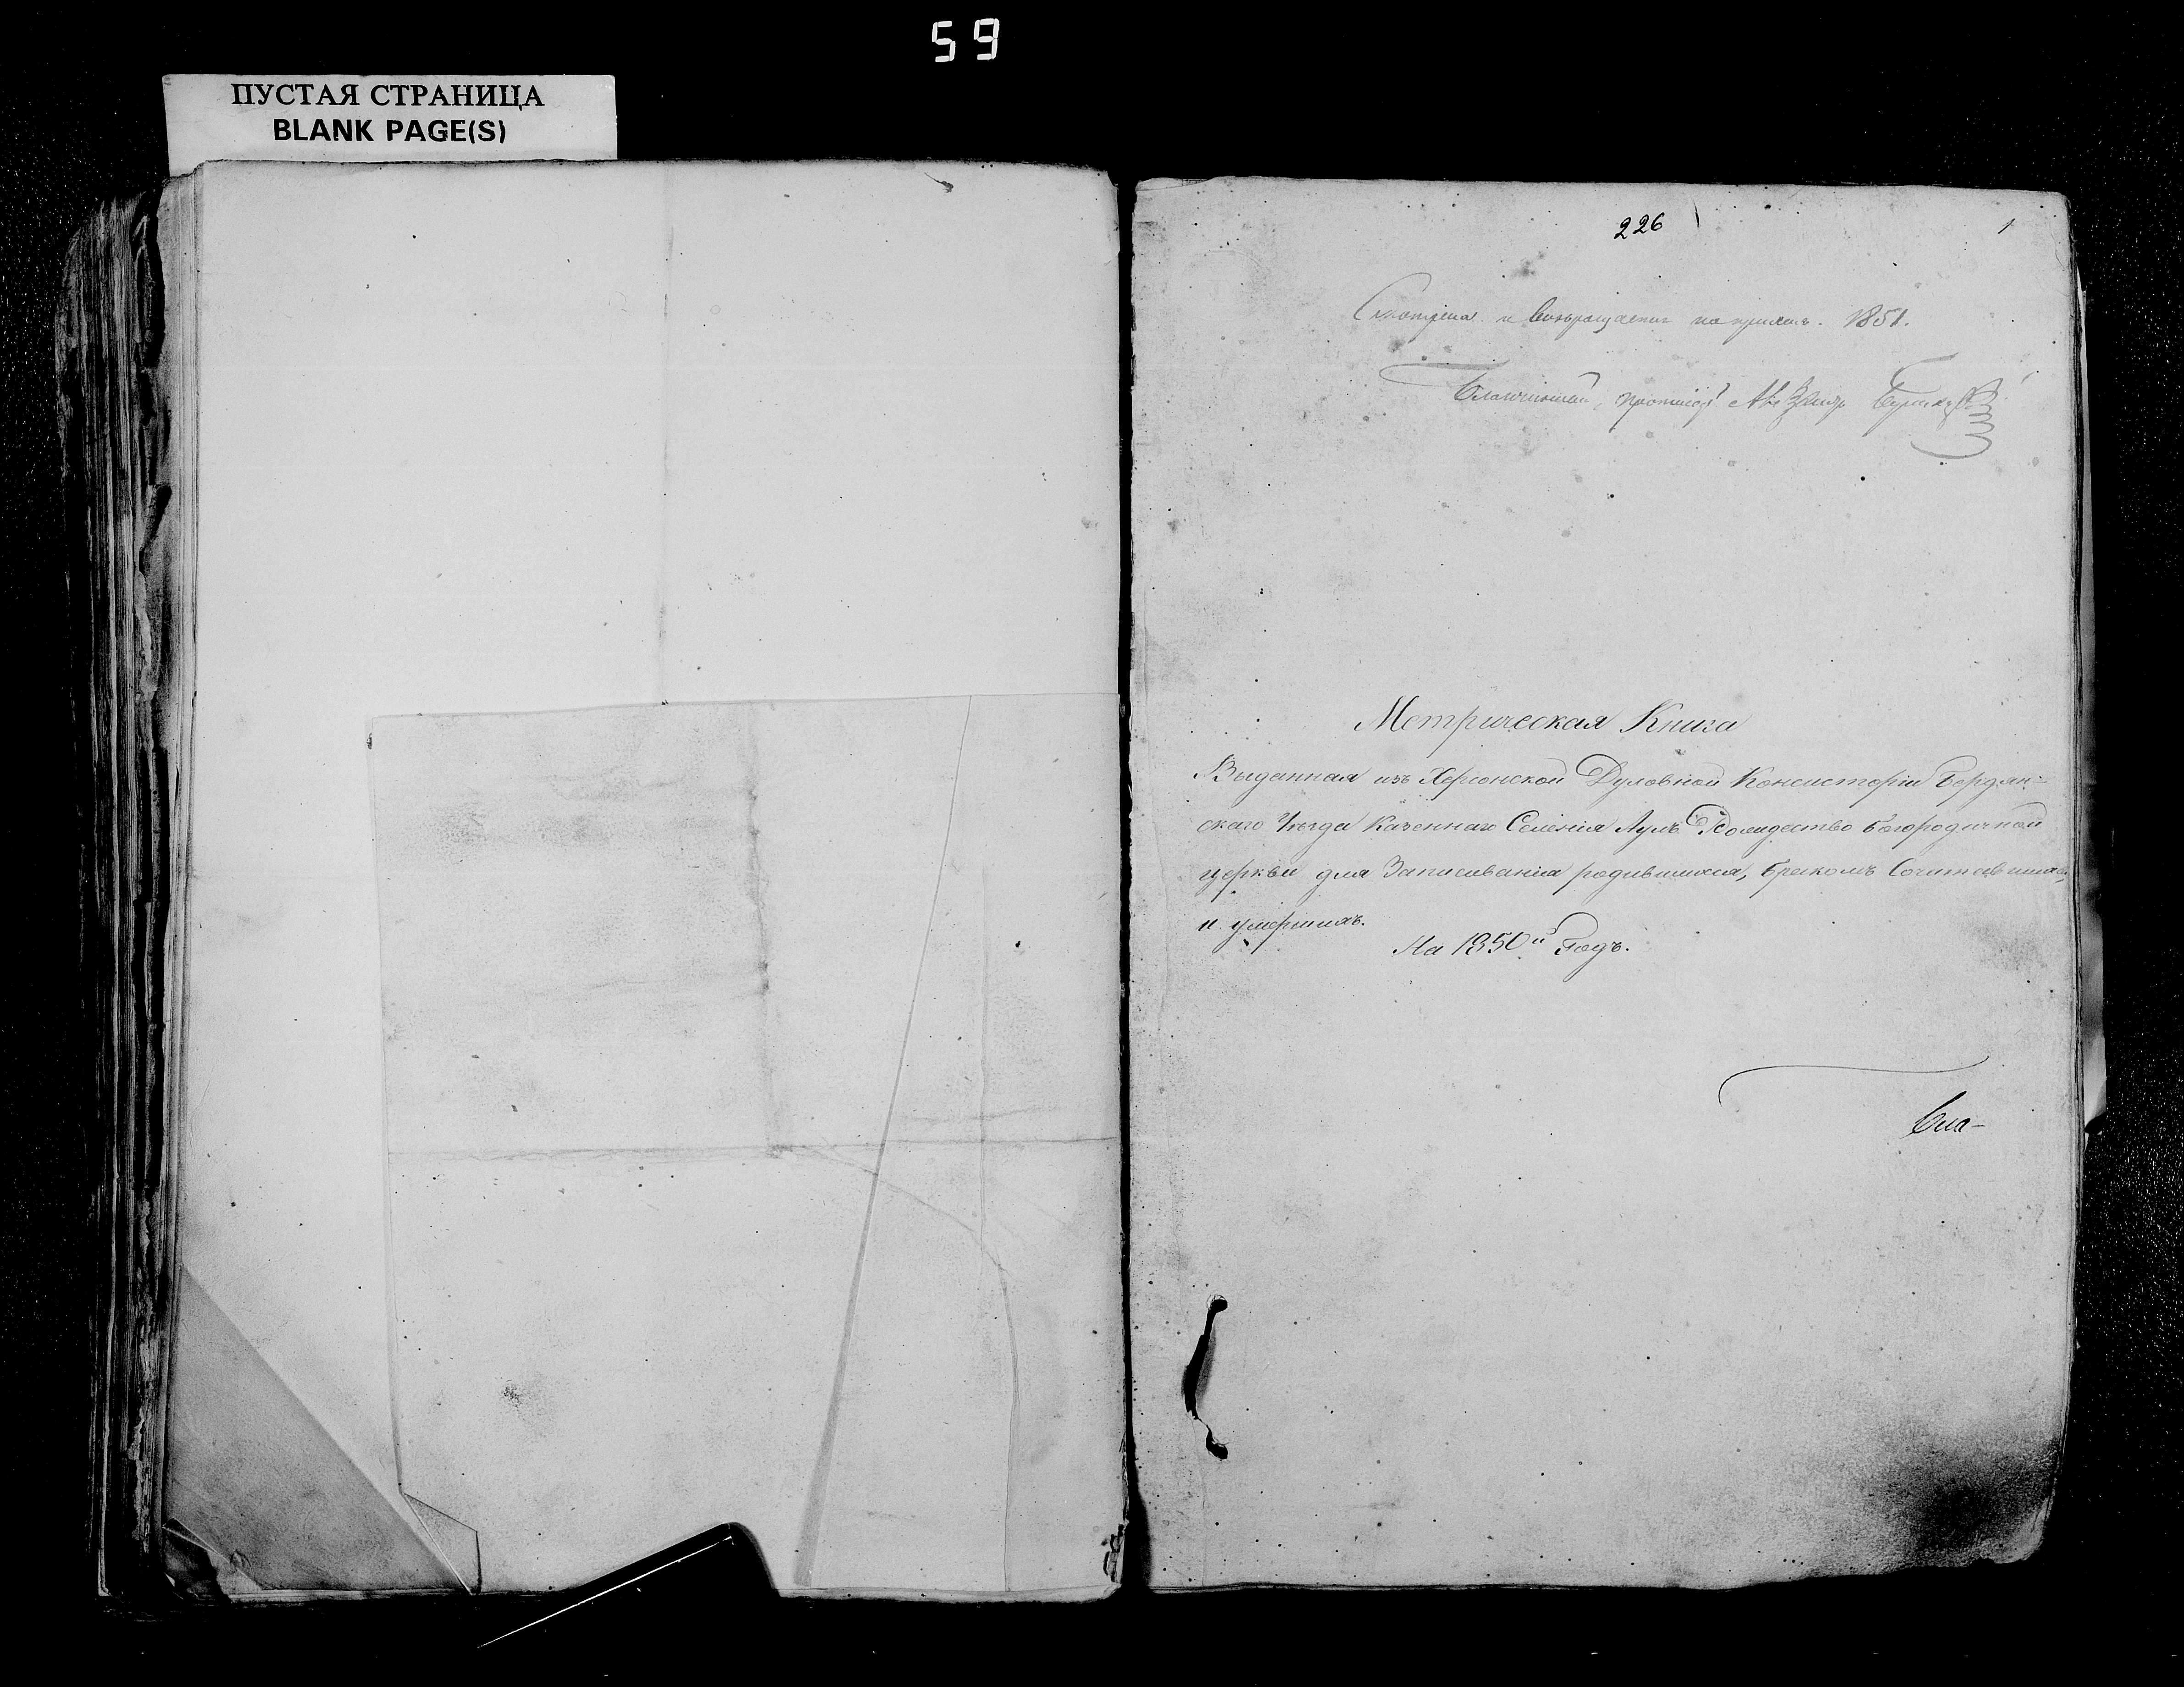 59
ПУСТАЯ СТРАНИЦА
BLANK PAGE(S)
226
1
и возвращается 1851.
Благочинный, протоіерей
Метрическая Книга
Выданная изъ Херсонской Духовной Консисторіи Бердян=
скаго Уѣзда Казеннаго Селенія Аулъ Рождество Богородичной
церкви для Записыванія родившихся, бракомъ Сочитавшихся,
и умершихъ.
На 1850й Годъ.
Бла-